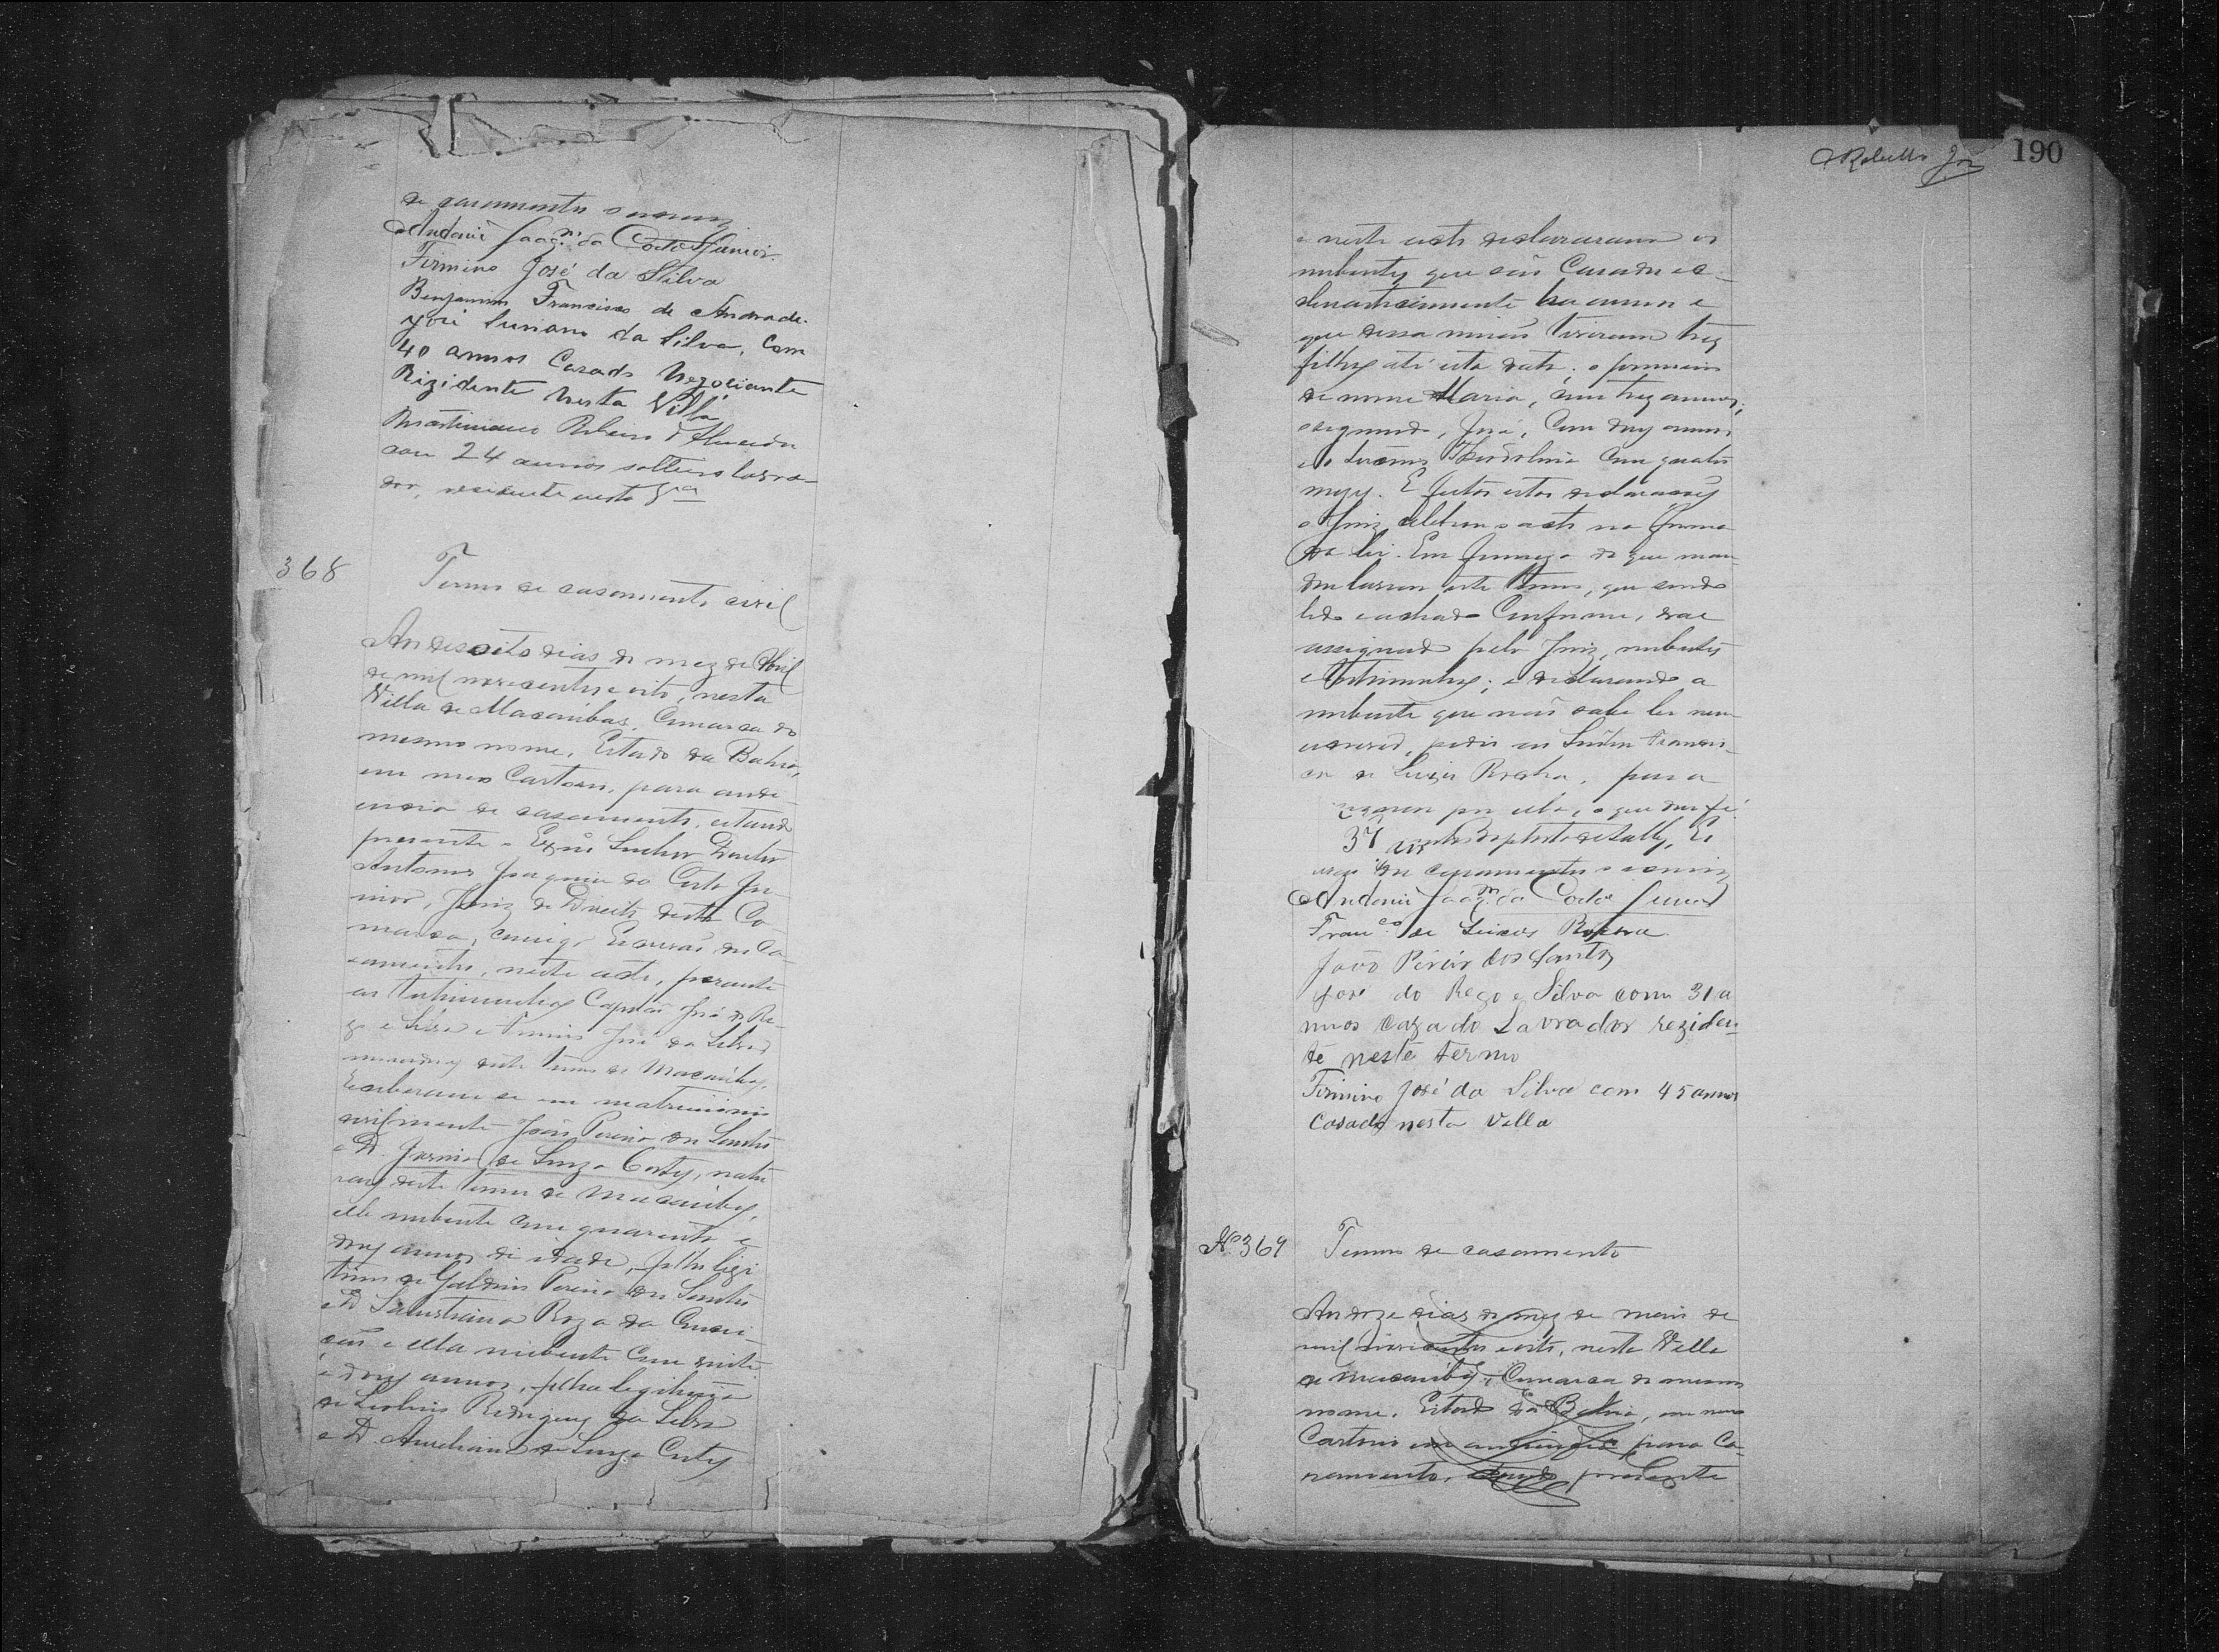 de casamentos o escrevy
Antonio Joaqm da Costa Junior.
Firmino José da Silva
Benjamim Francisco de Andrade.
José Suriano da Silva, com
40 annos Casado Negociante
Rizidente nesta Villa,
Martiniano Ribeiro d'Almeida
com 24 annos solteiro lavra-
dor, residente nesta
368
Termo de casamento civil
Aos desoito dias do mez de Abril
de mil novecentos e oito, nesta
Villa de Macaúbas, Comarca do
mesmo nome, Estado da Bahia,
em meo Cartorio, para audi-
encia de casamento, estando
presente o Exmo Senhor Doutor
Antonio Joaquim da Costa Ju-
nior, Juiz de Direito desta Co-
marca, comigo Escrivão de Ca-
samentos, neste acto, perante
as testimunhas Capitão José do Re-
go e Silva e Firmino José da Silva
moradores deste termo de Macaúbas,
Receberam se em matrimonio
civilmente João Pereira dos Santos
e D. de Souza Costa, natu-
raes deste termo de Macaúbas,
elle nubente com quarenta e
dous annos de idade, filho legi-
timo de Galdino Pereira dos Santos
e D. Salustiana Roza da Concei-
ção e ella nubente com vinte
e dous annos, filha legitima
de Rodrigues da Silva
e D. Aureliana de Souza Costa
Rabello Jor 190
e neste acto declararam os
nubentes que são Casados ec-
clesiasticamente ha annos e
que dessa união tiveram trez
filhos até esta data; o primeiro
de nome Maria, com trez annos;
o segundo, José, com dous annos
e o terceiro com quatro
mezes. E feitas estas declarações
o Juiz celebrou o acto na forma
da lei. Em firmeza do que man-
dou lavrar este termo, que sendo
lido e achado conforme, vae
assignado pelo Juiz, nubentes
e testimunhas; e declarando a
nubente que não sabe ler nem
escrever, pediu ao Senhor Francis-
co de Seixas para
por ella, o que dou fé.
37
de casamentos o escrevy
Antonio Joaqm da Costa Junior
Franco de Seixas
João Pereira dos Santos
José do Rego e Silva com 31 a
nnos cazado Lavrador reziden-
te neste termo
Firmino José da Silva com 45 annos
Casado nesta Villa
No 369
Termo de casamento
Aos doze dias do mez de maio de
mil novecentos e oito, nesta Villa
de Macaúbas, Comarca do mesmo
nome, Estado da Bahia, em meo
Cartorio em audiencia para Ca-
samento, estando presente